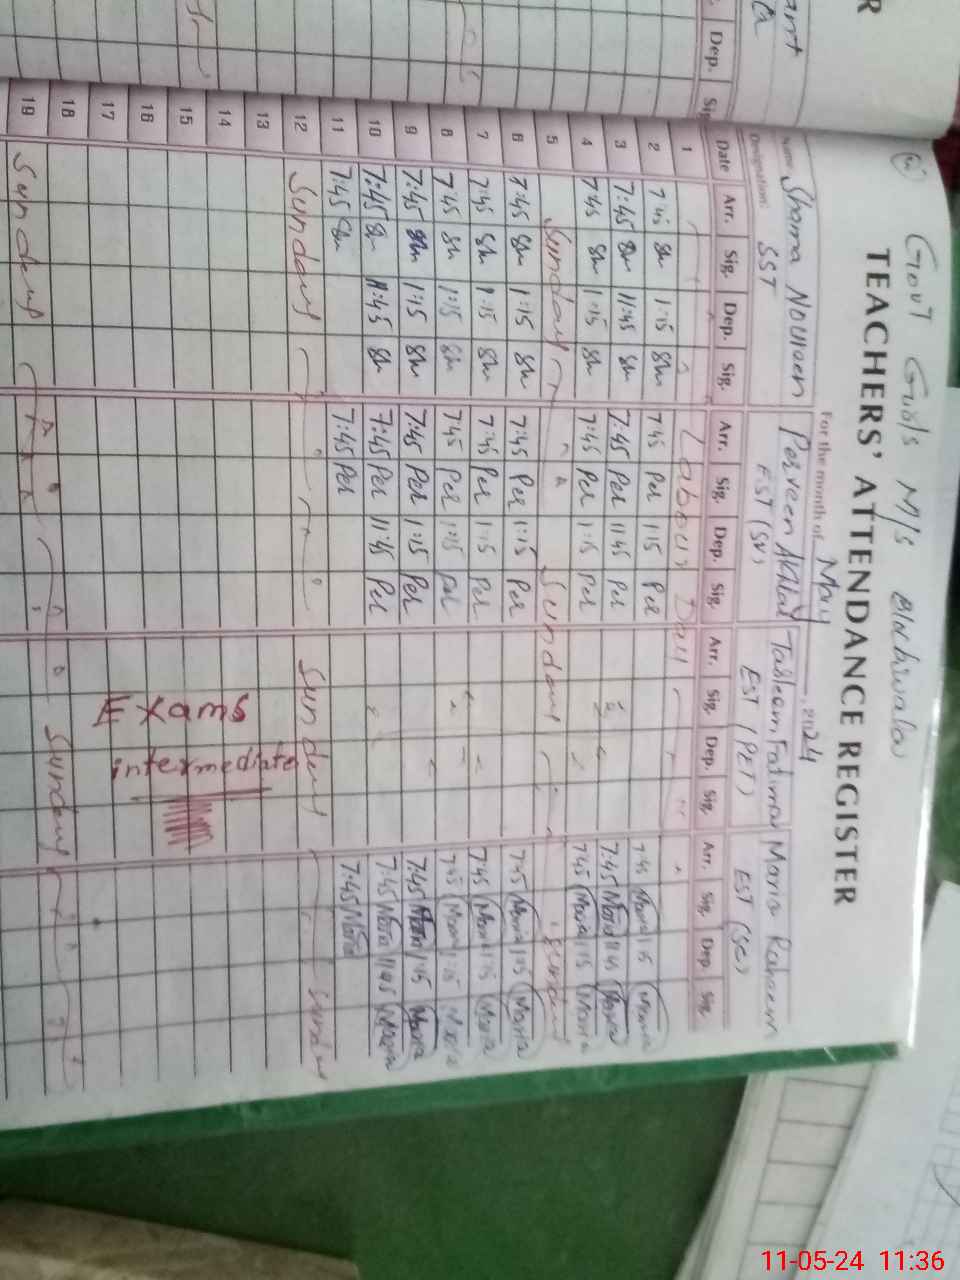 Govt Girls M/S
TEACHERS' ATTENDANCE REGISTER
For the month of May, 2024
Name Shama Noureen Perveen Akhtar Tasleem Fatima Maria Raheem
Designation: SST EST (SV) EST (PET) EST (SC)
Date Arr. Sig. Dep. Sig. Arr. Sig. Dep. Sig. Arr. Sig. Dep. Sig. Arr. Sig. Dep. Sig.
1 Labour Day
2 7:45 Sh 1:15 Sh 7:45 Per 1:15 Per 7:45 Maria 1:15 Maria
3 7:45 Sh 11:45 Sh 7:45 Per 11:45 Per 7:45 Maria 11:45 Maria
4 7:45 Sh 1:15 Sh 7:45 Per 1:15 Per 7:45 Maria 1:15 Maria
5 Sunday Sunday Sunday
6 7:45 Sh 1:15 Sh 7:45 Per 1:15 Per 7:45 Maria 1:15 Maria
7 7:45 Sh 1:15 Sh 7:45 Per 1:15 Per 7:45 Maria 1:15 Maria
8 7:45 Sh 1:15 Sh 7:45 Per 1:15 Per 7:45 Maria 1:15 Maria
9 7:45 Sh 1:15 Sh 7:45 Per 1:15 Per 7:45 Maria 1:15 Maria
10 7:45 Sh 11:45 Sh 7:45 Per 11:45 Per 7:45 Maria 11:45 Maria
11 7:45 Sh 7:45 Per 7:45 Maria
12 Sunday Sunday Sunday
13
14
15
16
17
18
19 Sunday Sunday
intermediate
Exams
R
Dep. Sig
11-05-24 11:36